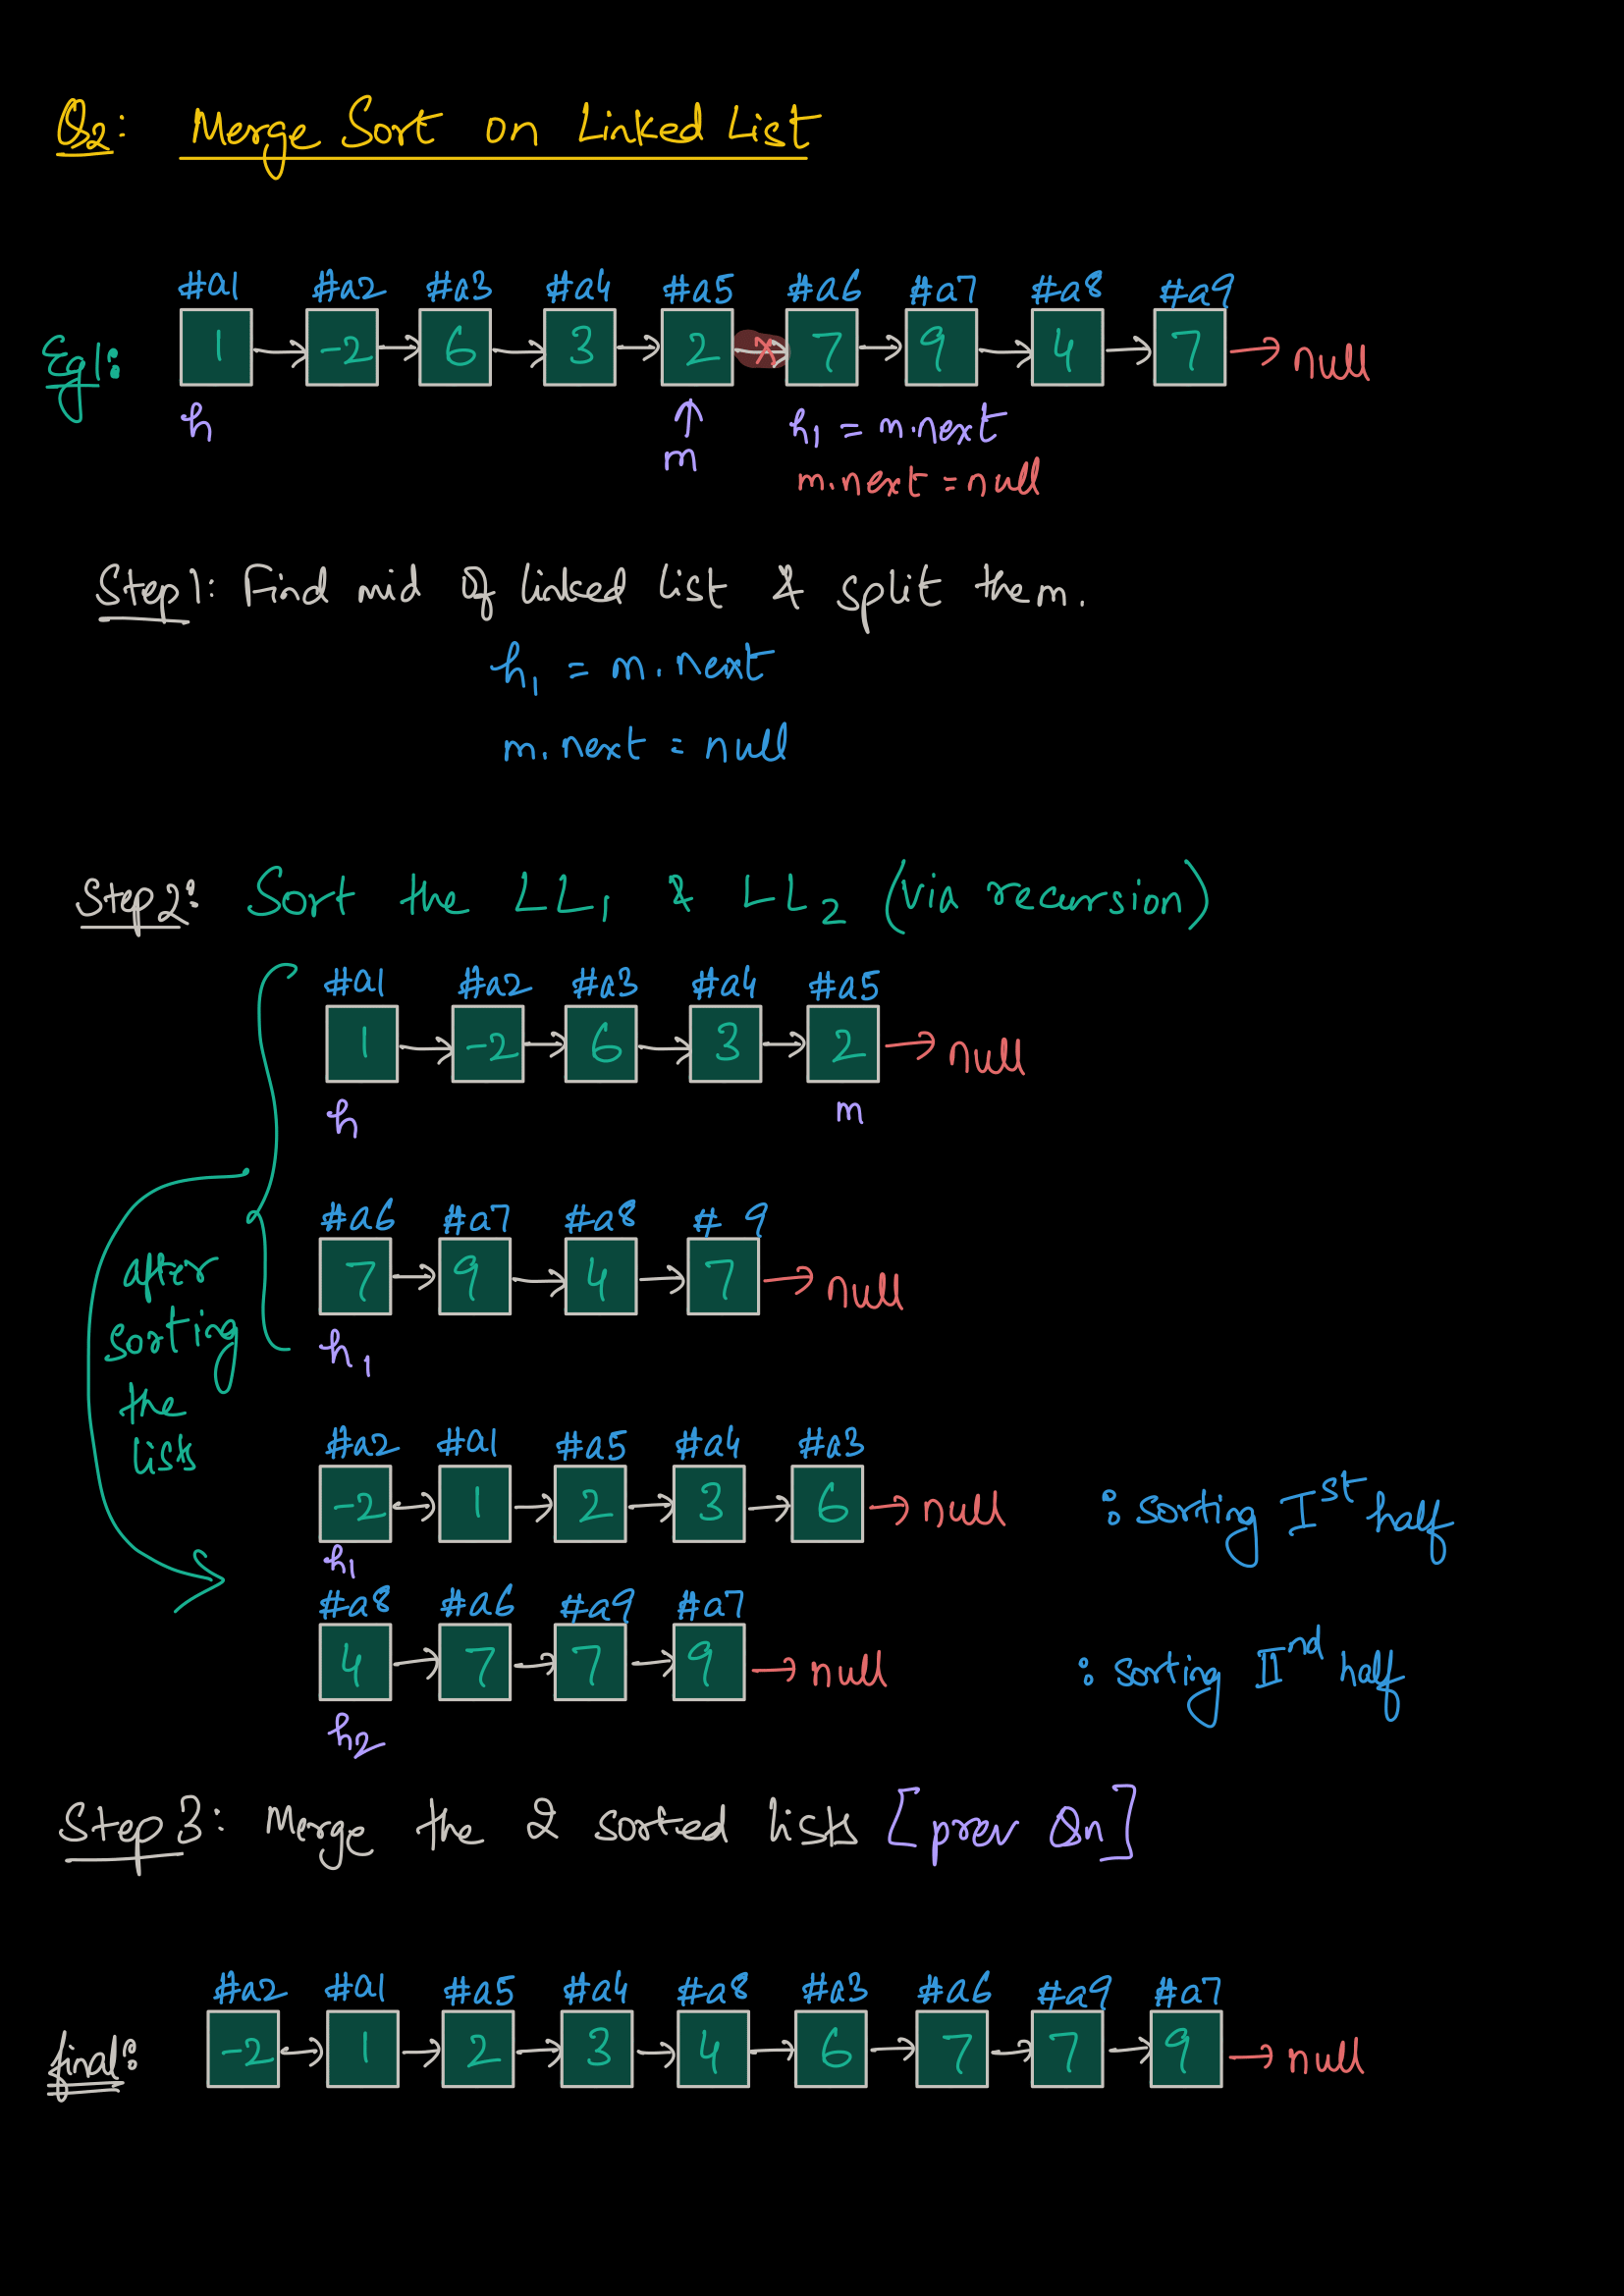 Q2: Merge Sort on Linked List
#a1 #a2 #a3 #a4 #a5 #a6 #a7 #a8 #a9
Eg1: 1 -2 6 3 2 x 7 9 4 7 null
h m h1 = m.next
m.next = null
Step1: Find mid of linked list & split them.
h1 = m.next
m.next = null
Step2: Sort the LL1 & LL2 (via recursion)
#a1 #a2 #a3 #a4 #a5
1 -2 6 3 2 null
h m
#a6 #a7 #a8 # 9
7 9 4 7 null
h1
after
sorting
the
lists
#a2 #a1 #a5 #a4 #a3
-2 1 2 3 6 null : sorting Ist half
h1
#a8 #a6 #a9 #a7
4 7 7 9 null : sorting IInd half
h2
Step 3: Merge the 2 sorted lists [prev Qn]
#a2 #a1 #a5 #a4 #a8 #a3 #a6 #a9 #a7
final: -2 1 2 3 4 6 7 7 9 null